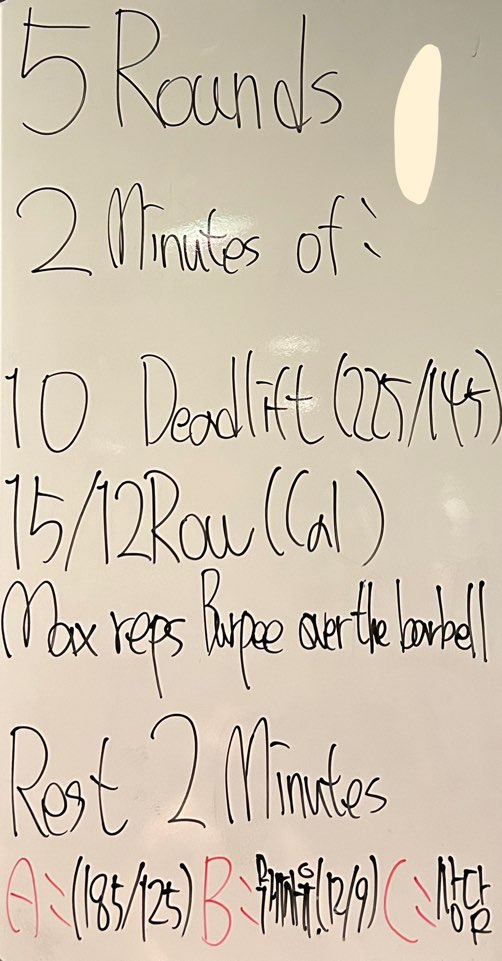 5 Rounds
2 Minutes of :
10 Deadlift (225/145)
15/12 Row (Cal)
Max reps Burpee over the barbell
Rest 2 Minutes
A: (185/125) B: (12/9) C: 상담